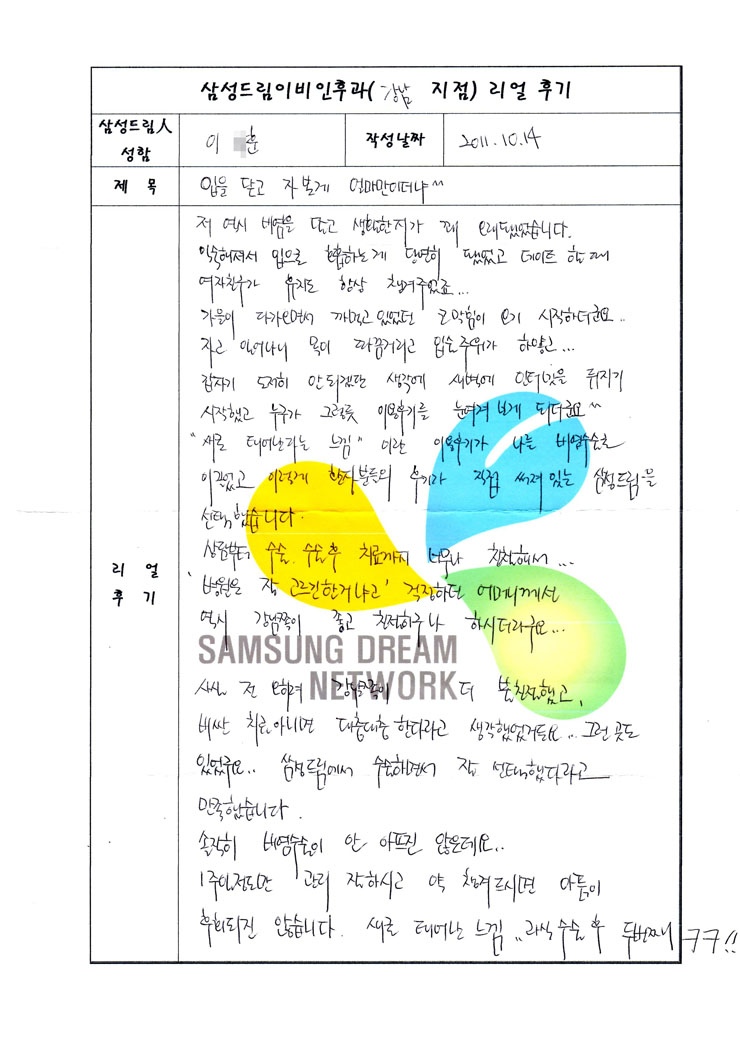 삼성드림이비인후과(강남 지점) 리얼 후기
삼성드림人 성함
이 훈
작성날짜
2011.10.14
제 목
입을 닫고 자본게 얼마만이더냐^^
리 얼 후 기
저 역시 비염을 달고 생활한지가 꽤 오래됐었습니다.
익숙해져서 입으로 호흡하는게 당연히 됐었고 데이트 할때
여자친구가 휴지도 항상 챙겨주었죠...
가을이 다가오면서 까먹고 있었던 코막힘이 오기 시작하더군요..
자고 일어나니 목이 따끔거리고 입술주위가 하얗고...
갑자기 도저히 안되겠단 생각에 새벽에 인터넷을 뒤지기
시작했고 누구나 그렇듯 이용후기를 눈여겨 보게 되더군요^^
"새로 태어난다는 느낌" 이란 이용후기가 나를 비염수술로
이끌었고 이렇게 환자분들의 후기가 직접 써져있는 삼성드림을
선택했습니다.
상담부터 수술, 수술후 치료까지 너무나 친절해서...
'병원은 잘 고르긴한거냐고' 걱정하던 어머니께선
역시 강남쪽이 좋고 친절하구나 하시더라구요...
SAMSUNG DREAM
NETWORK
사실 전 오히려 강남쪽이 더 불친절했고,
비싼 치료아니면 대충대충한다라고 생각했었거든요... 그런 곳도
있었구요.. 삼성드림에서 수술하면서 잘 선택했다라고
만족했습니다.
솔직히 비염수술이 안 아프진 않은데요..
1주일정도만 관리 잘하시고 약 챙겨드시면 아픔이
후회되진 않습니다. 새로 태어난 느낌.. 라식수술 후 두번째네 ㅋㅋ!!